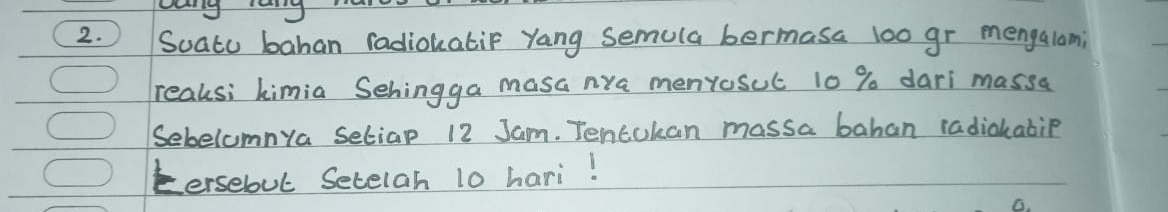 2. Suatu bahan radiokatif yang semula bermasa 100 gr mengalami
reaksi kimia Sehingga masa nya menyusut 10 % dari massa
Sebelumnya setiap 12 Jam. Tentukan massa bahan radiokatif
tersebut Setelah 10 hari !